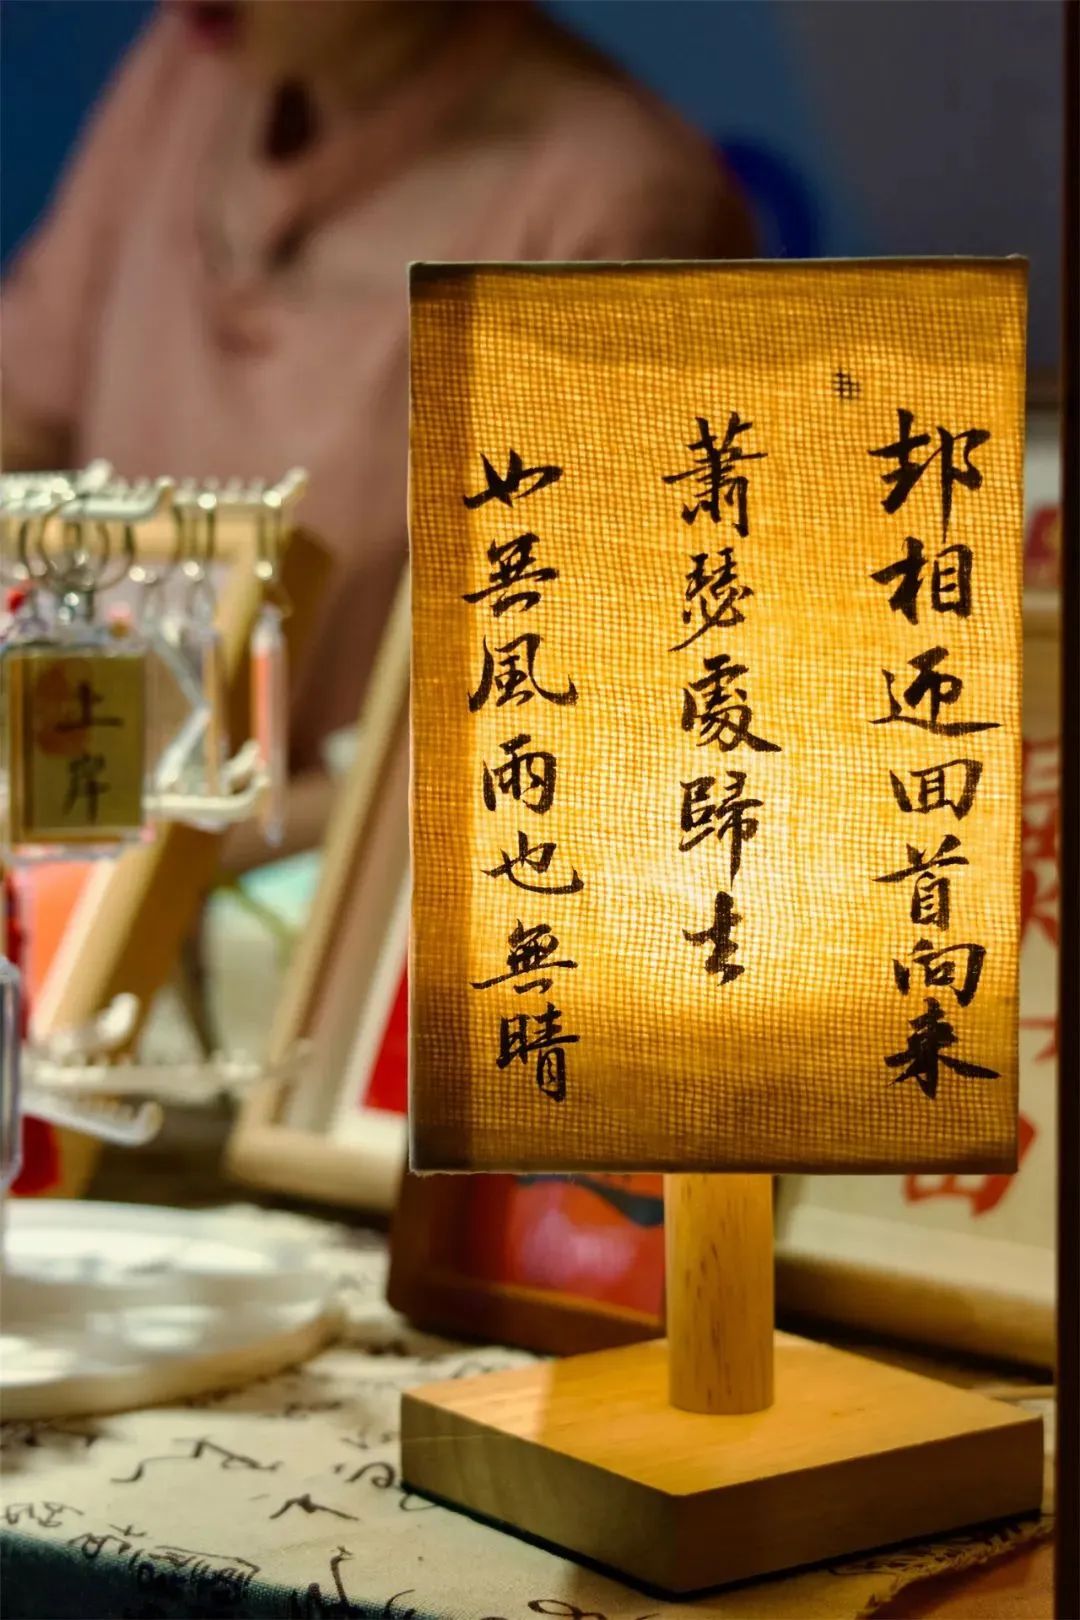 却相迎囬首向来
蕭瑟處歸去
也無風雨也無晴
上岸